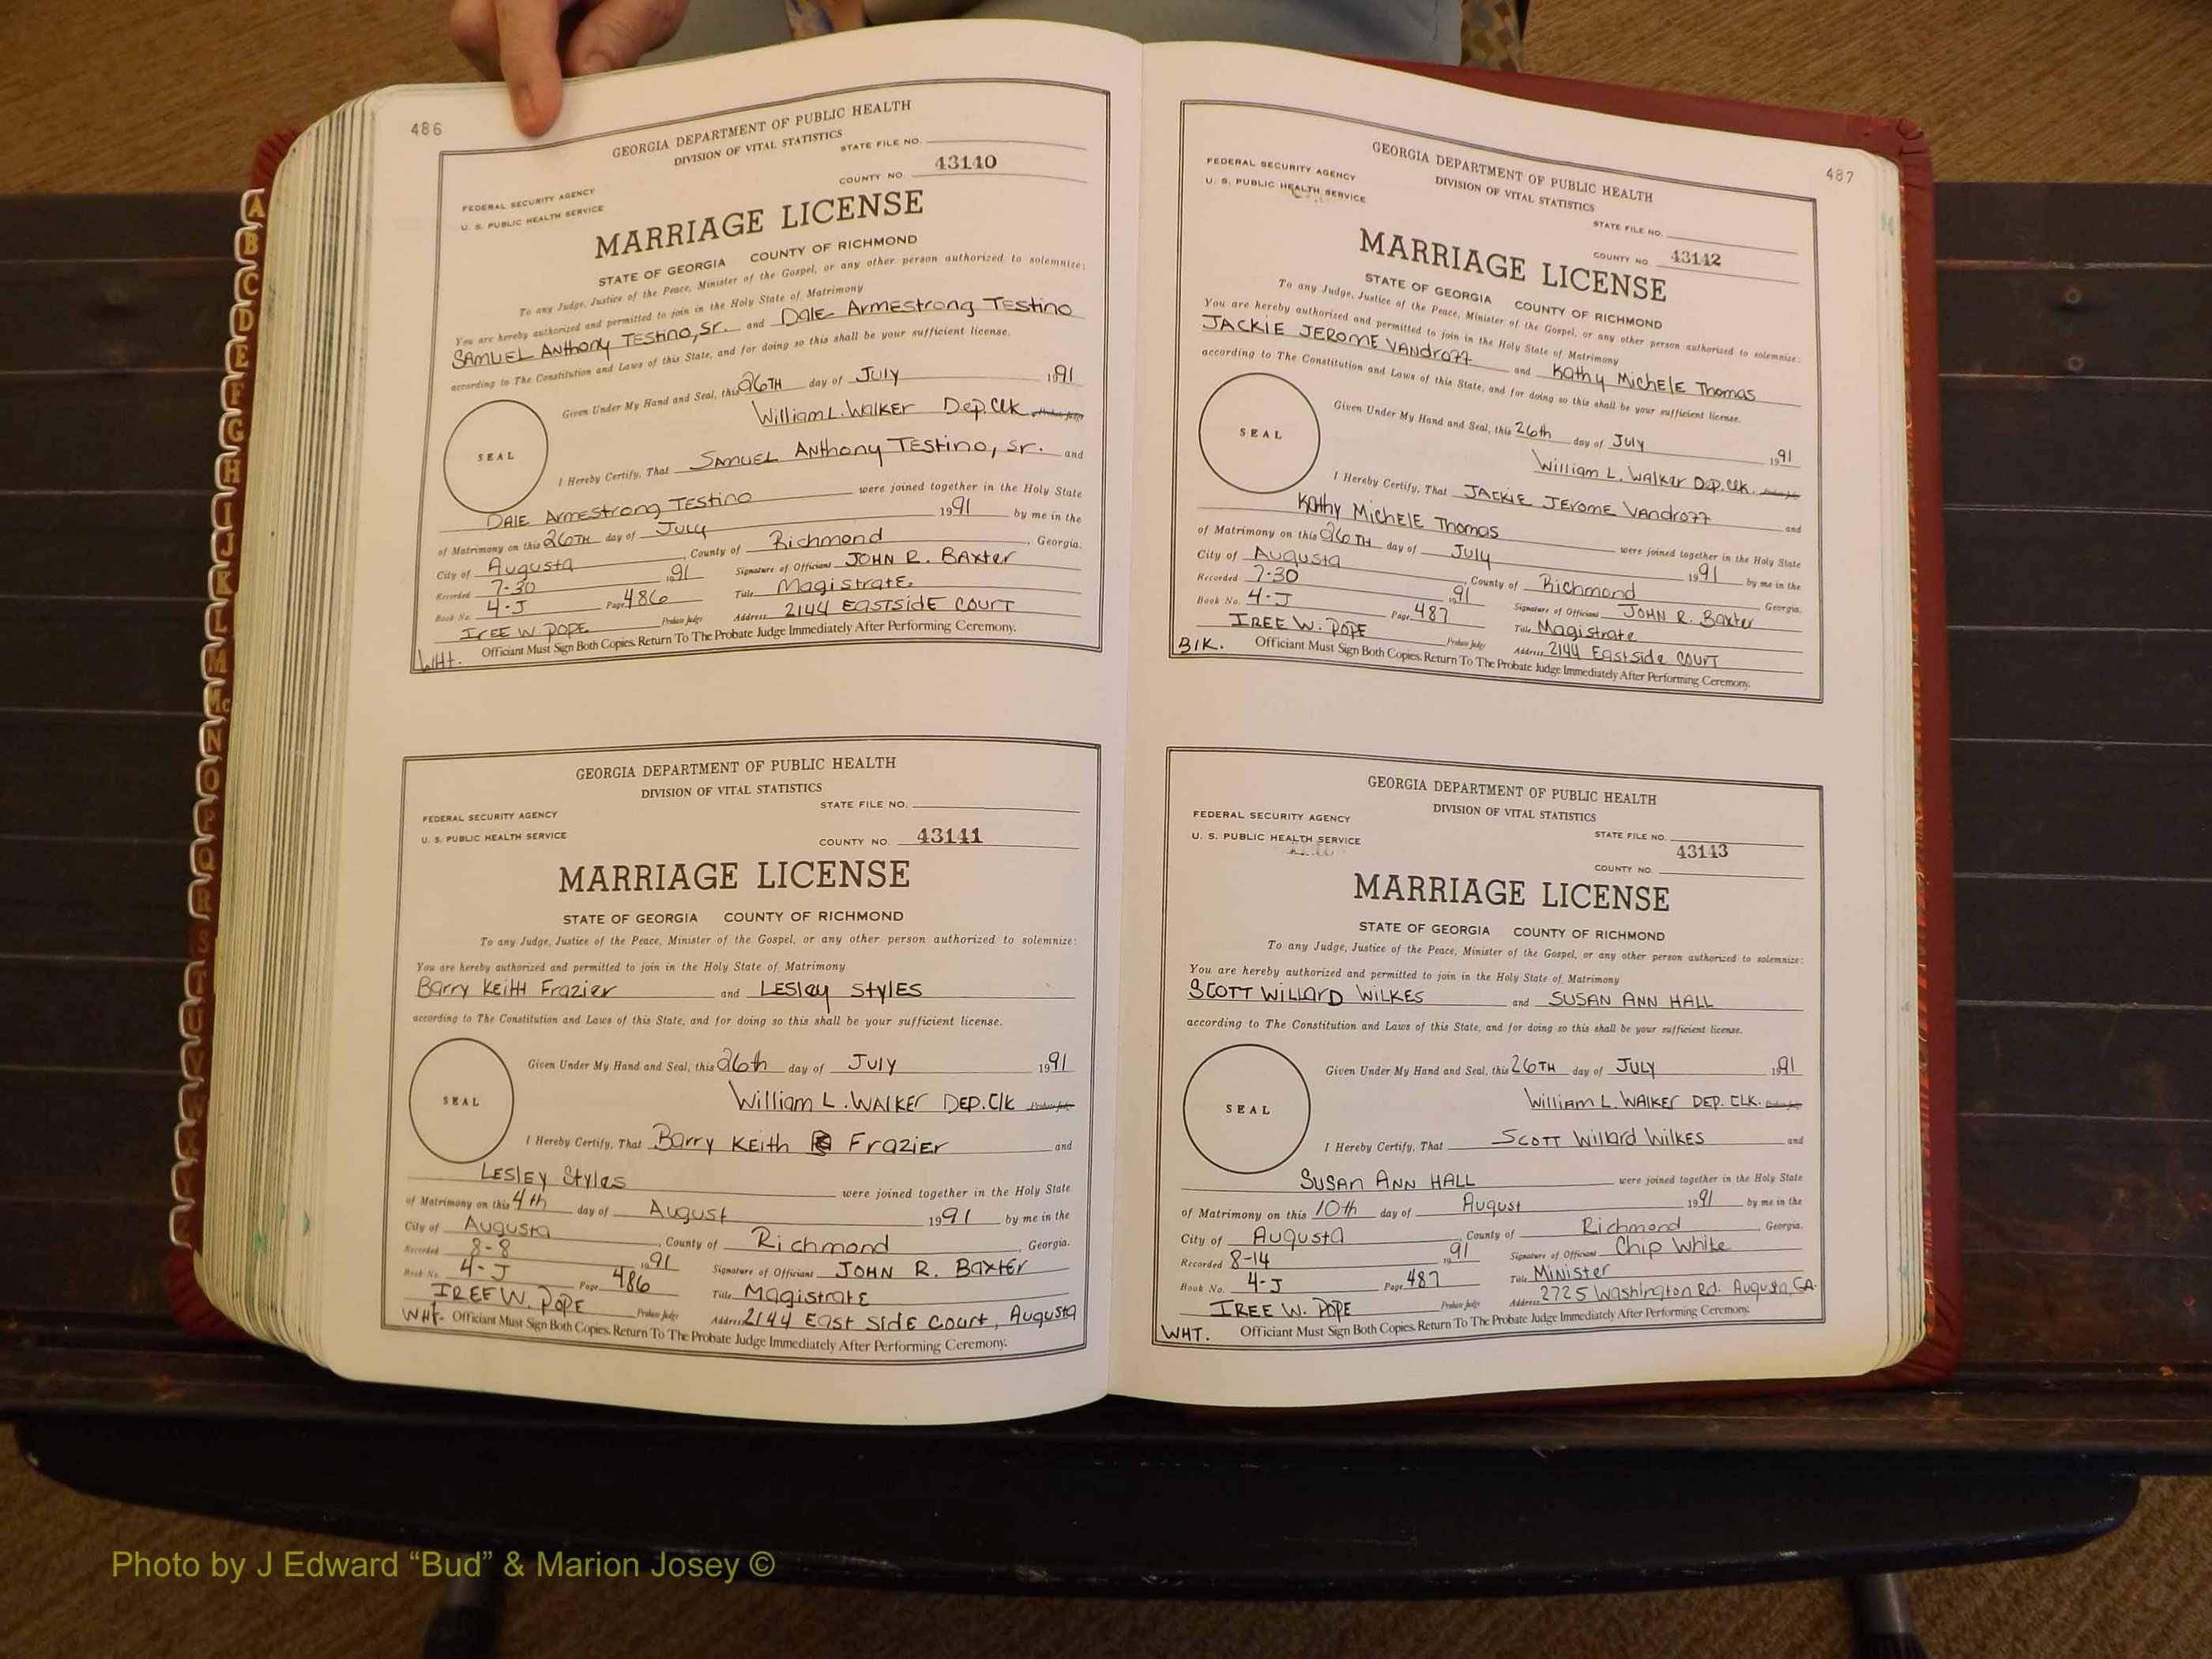 486
GEORGIA DEPARTMENT OF PUBLIC HEALTH
DIVISION OF VITAL STATISTICS
STATE FILE NO.
FEDERAL SECURITY AGENCY
U. S. PUBLIC HEALTH SERVICE
COUNTY NO. 43140
MARRIAGE LICENSE
STATE OF GEORGIA COUNTY OF RICHMOND
To any Judge, Justice of the Peace, Minister of the Gospel, or any other person authorized to solemnize:
You are hereby authorized and permitted to join in the Holy State of Matrimony
SAMUEL ANthony TESTino, Sr. and DalE ArmEstrong TEStino
according to The Constitution and Laws of this State, and for doing so this shall be your sufficient license.
Given Under My Hand and Seal, this 26TH day of July 1991
William L. WALKER Dep. Clk. Probate Judge
SEAL
I Hereby Certify, That SAMUEL ANthony TESTino, Sr. and
DAlE ArmEstrong TEStino were joined together in the Holy State
of Matrimony on this 26TH day of July 1991 by me in the
City of Augusta, County of Richmond, Georgia.
Recorded 7-30 1991 Signature of Officiant JOHN R. BAxter
Book No. 4-J Page 486 Title MagistratE.
IREE W. POPE Probate Judge Address 2144 EASTsidE COURT
WHt. Officiant Must Sign Both Copies. Return To The Probate Judge Immediately After Performing Ceremony.
GEORGIA DEPARTMENT OF PUBLIC HEALTH
DIVISION OF VITAL STATISTICS
STATE FILE NO.
FEDERAL SECURITY AGENCY
U. S. PUBLIC HEALTH SERVICE
COUNTY NO. 43141
MARRIAGE LICENSE
STATE OF GEORGIA COUNTY OF RICHMOND
To any Judge, Justice of the Peace, Minister of the Gospel, or any other person authorized to solemnize:
You are hereby authorized and permitted to join in the Holy State of Matrimony
Barry KEitH Frazier and LESley StyLES
according to The Constitution and Laws of this State, and for doing so this shall be your sufficient license.
Given Under My Hand and Seal, this 26th day of July 1991
William L. WALKER DEP. Clk Probate Judge
SEAL
I Hereby Certify, That Barry KEith FraziEr and
LESLEY Styles were joined together in the Holy State
of Matrimony on this 4th day of August 1991 by me in the
City of Augusta, County of Richmond, Georgia.
Recorded 8-8 1991 Signature of Officiant JOHN R. BaxtEr
Book No. 4-J Page 486 Title MagistratE
IREE W. POPE Probate Judge Address 2144 East SidE Court, Augusta
WHt. Officiant Must Sign Both Copies. Return To The Probate Judge Immediately After Performing Ceremony.
487
GEORGIA DEPARTMENT OF PUBLIC HEALTH
DIVISION OF VITAL STATISTICS
FEDERAL SECURITY AGENCY
U. S. PUBLIC HEALTH SERVICE
STATE FILE NO.
COUNTY NO. 43142
MARRIAGE LICENSE
STATE OF GEORGIA COUNTY OF RICHMOND
To any Judge, Justice of the Peace, Minister of the Gospel, or any other person authorized to solemnize:
You are hereby authorized and permitted to join in the Holy State of Matrimony
JACKIE JEROME VANDrozz and KAthy MichElE Thomas
according to The Constitution and Laws of this State, and for doing so this shall be your sufficient license.
Given Under My Hand and Seal, this 26th day of July 1991
William L. WALKer Dep. Clk. Probate Judge
SEAL
I Hereby Certify, That JACKIE JErome VAndrozz and
KAthy MichElE Thomas were joined together in the Holy State
of Matrimony on this 26TH day of July 1991 by me in the
City of Augusta, County of Richmond, Georgia.
Recorded 7-30 1991 Signature of Officiant JOHN R. Baxter
Book No. 4-J Page 487 Title Magistrate
IREE W. POPE Probate Judge Address 2144 Eastside COURT
BlK. Officiant Must Sign Both Copies. Return To The Probate Judge Immediately After Performing Ceremony.
GEORGIA DEPARTMENT OF PUBLIC HEALTH
DIVISION OF VITAL STATISTICS
FEDERAL SECURITY AGENCY
U. S. PUBLIC HEALTH SERVICE
STATE FILE NO.
43143
COUNTY NO.
MARRIAGE LICENSE
STATE OF GEORGIA COUNTY OF RICHMOND
To any Judge, Justice of the Peace, Minister of the Gospel, or any other person authorized to solemnize:
You are hereby authorized and permitted to join in the Holy State of Matrimony
SCOTT WILLARD WILKES and SUSAN ANN HALL
according to The Constitution and Laws of this State, and for doing so this shall be your sufficient license.
Given Under My Hand and Seal, this 26TH day of JULY 1991
William L. WALKER DEP. CLK. Probate Judge
SEAL
I Hereby Certify, That SCOTT Willard WilKES and
SUSAN ANN HALL were joined together in the Holy State
of Matrimony on this 10th day of August 1991 by me in the
City of Augusta, County of Richmond, Georgia.
Recorded 8-14 1991 Signature of Officiant Chip White
Book No. 4-J Page 487 Title Minister
IREE W. POPE Probate Judge Address 2725 Washington Rd. Augusta, GA.
WHT. Officiant Must Sign Both Copies. Return To The Probate Judge Immediately After Performing Ceremony.
A
B
C
D
E
F
G
H
I
J
K
L
M
Mc
N
O
P
Q
R
S
T
Photo by J Edward “Bud” & Marion Josey ©